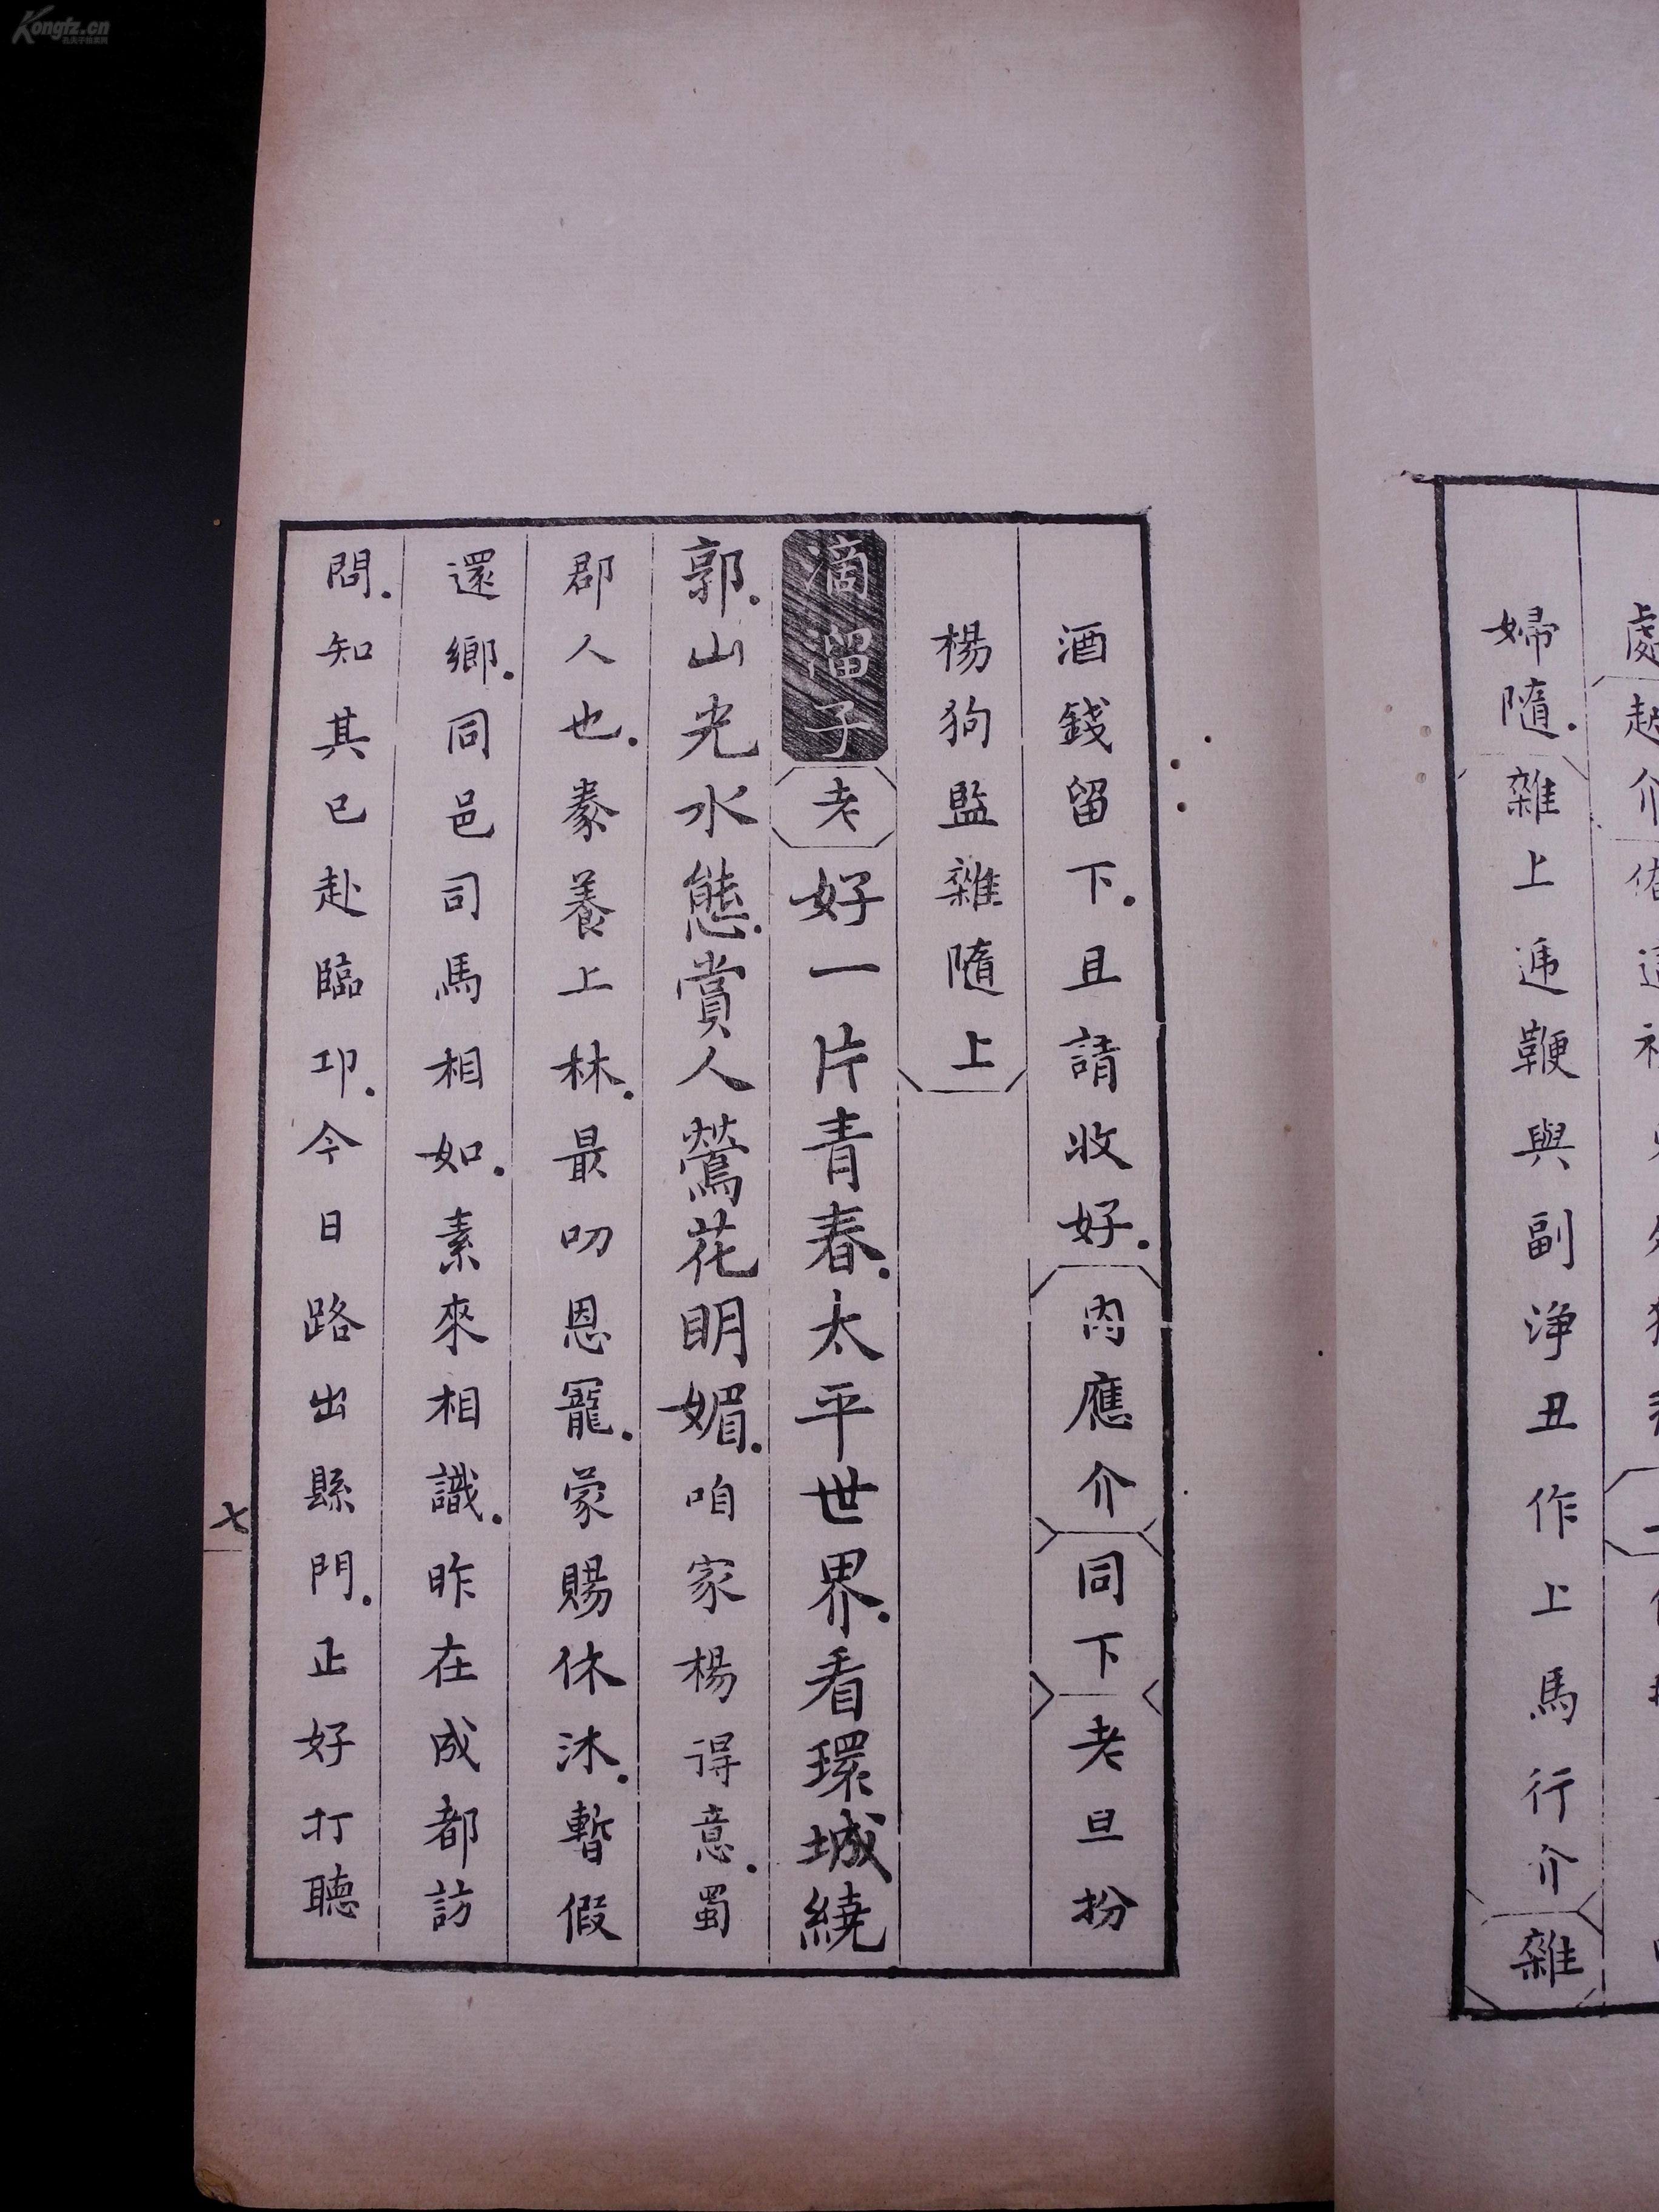 Kongfz.cn
婦隨．雜上逓鞭與副淨丑作上馬行介雜
酒錢留下．且請收好．内應介同下老旦扮
楊狗監雜隨上
滴溜子老好一片青春．太平世界．看環城繞
郭．山光水態．賞人鶯花明媚．咱家楊得意．蜀
郡人也．豢養上林．最叨恩寵．蒙賜休沐．暫假
還鄉．同邑司馬相如．素來相識．昨在成都訪
問．知其已赴臨邛．今日路出縣門．正好打聽
七